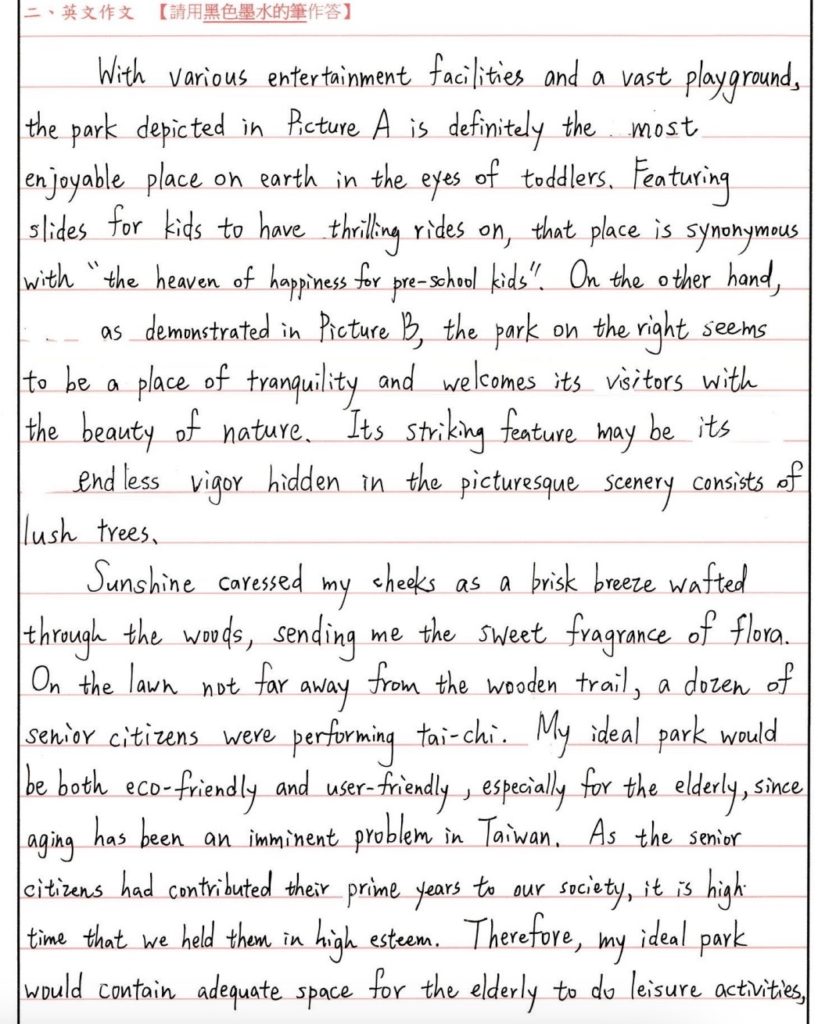 二、英文作文 【請用黑色墨水的筆作答】
With various entertainment facilities and a vast playground,
the park depicted in Picture A is definitely the most
enjoyable place on earth in the eyes of toddlers. Featuring
slides for kids to have thrilling rides on, that place is synonymous
with "the heaven of happiness for pre-school kids". On the other hand,
as demonstrated in Picture B, the park on the right seems
to be a place of tranquility and welcomes its visitors with
the beauty of nature. Its striking feature may be its
endless vigor hidden in the picturesque scenery consists of
lush trees.
Sunshine caressed my cheeks as a brisk breeze wafted
through the woods, sending me the sweet fragrance of flora.
On the lawn not far away from the wooden trail, a dozen of
senior citizens were performing tai-chi. My ideal park would
be both eco-friendly and user-friendly, especially for the elderly, since
aging has been an imminent problem in Taiwan. As the senior
citizens had contributed their prime years to our society, it is high
time that we held them in high esteem. Therefore, my ideal park
would contain adequate space for the elderly to do leisure activities,